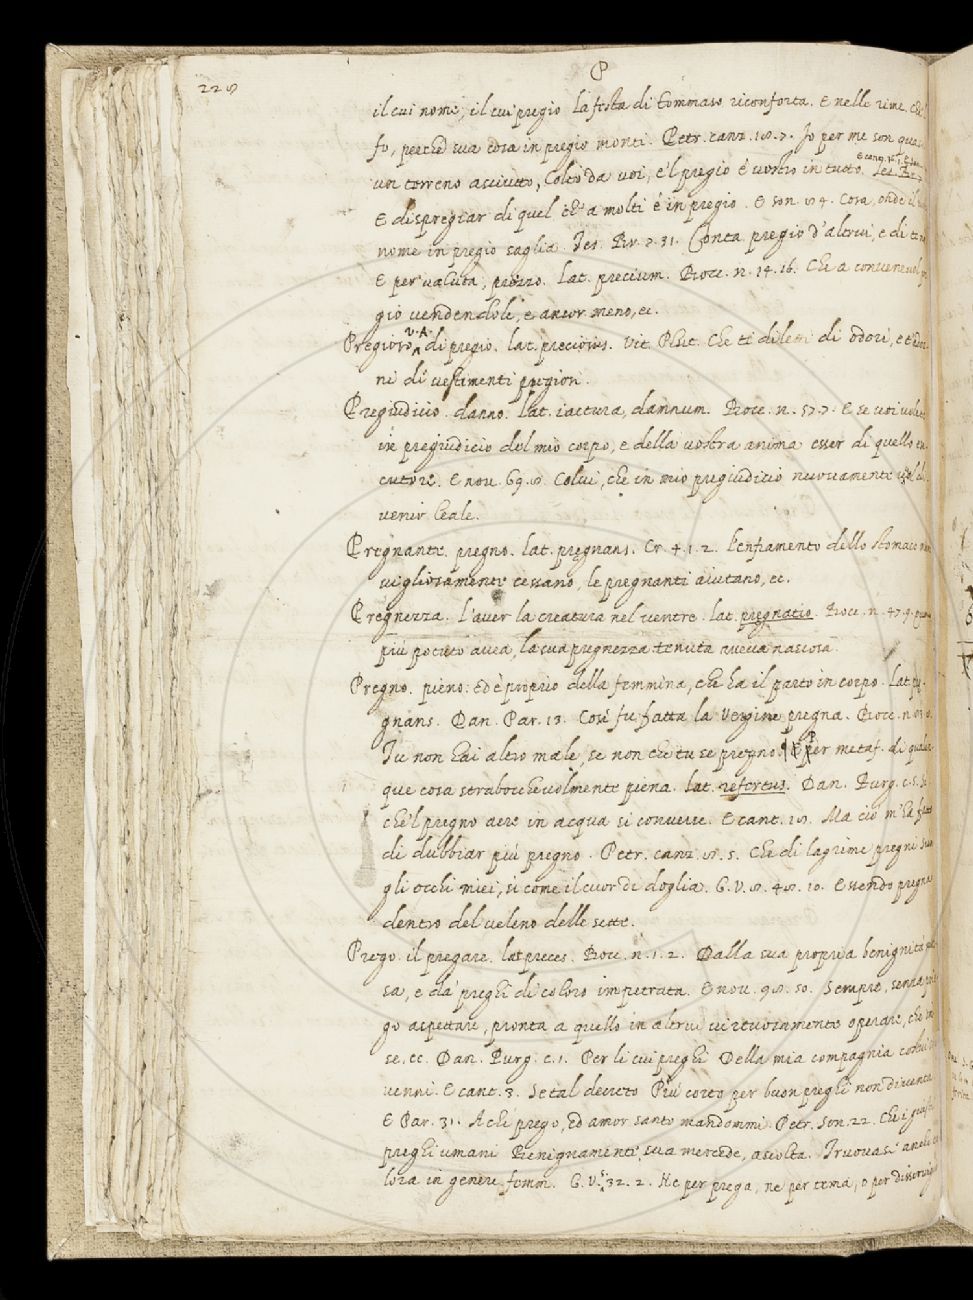 228
P
il cui nome, il cui pregio La festa di Tommaso riconforta. E nelle rime.
fo, perche sua cosa in pregio monti. Petr. canz. 18. 7. Io per me son qua
E canz. 16.
un terreno asciutto, Colto da voi, e'l pregio é vostro in tutto.
E dispregiar di quel ch'a molti é in pregio. E son. 84. Cosa, onde il
nome in pregio saglia. Tes. Br. 7. 31. Conta pregio d'altrui, e di te
E per valuta, prezzo. Lat. precium. Bocc. n. 14. 16. Che a convenevol
gio vendendole, e ancor meno, ec.
V. A.
Pregioso, di pregio. lat. preciosus. Vit. Plut. Che ti diletti di odori, e
ni di vestimenti pregiosi.
Pregiudicio. danno. Lat. iactura, damnum. Bocc. n. 57. 7. E se voi volete
in pregiudicio del mio corpo, e della vostra anima esser di quello
cutore. E nov. 69. 8. Colui, che in mio pregiudicio nuovamente
venir leale.
Pregnante. pregno. lat. pregnans. Cr. 4. 1. 2. L'enfiamento dello stomaco
vigliosamente cessano, le pregnanti aiutano, ec.
Pregnezza. L'aver la creatura nel ventre. lat. pregnatio. Bocc. n. 47. 9.
piú potuto avea, la sua pregnezza tenuta aveva nascosa.
Pregno. pieno: ed è proprio della femmina, che ha il parto in corpo. Lat.
gnans. Dan. Par. 13. Cosí fu fatta la Vergine pregna. Bocc. n.
Tu non hai altro male, se non che tu se pregno. E per metaf. di qualun
que cosa strabocchevolmente piena. Lat. refertus. Dan. Purg. c. 5.
che'l pregno aere in acqua si converse. E cant. 18. Ma ciò m'ha fatto
di dubbiar piú pregno. Petr. canz. 8. 5. Che di lagrime pregni
gli occhi miei, si come il cuor di doglia. G. V. 8. 48. 10. Essendo pregna
dentro del veleno delle sette.
Prego. il pregare. lat preces. Bocc. n. 1. 2. Dalla sua propria benignità
sa, e da' preghi di coloro impetrata. E nov. 98. 50. Sempre, senza
go aspettare, pronta a quello in altrui virtuosamente operare, che
se, ec. Dan. Purg. c. 1. Per li cui preghi Della mia compagnia costui
venni. E cant. 3. Se tal decreto Piú corto per buon preghi non diventa
E Par. 31. A cli prego, ed amor santo mandommi. Petr. Son. 22. Che i
preghi umani Benignamente, sua mercede, ascolta. Truovasi
lora in genere femm. G. V. 32. 2. Ne per prega, ne per tema, o per